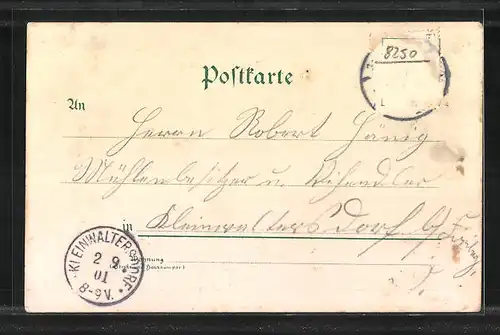 8250
Postkarte
An
Herrn Robert Hänig
Mühlenbesitzer u.
in Kleinwaltersdorf b/
Wohnung
KLEINWALTERSDORF
2 9
01
8-9V.